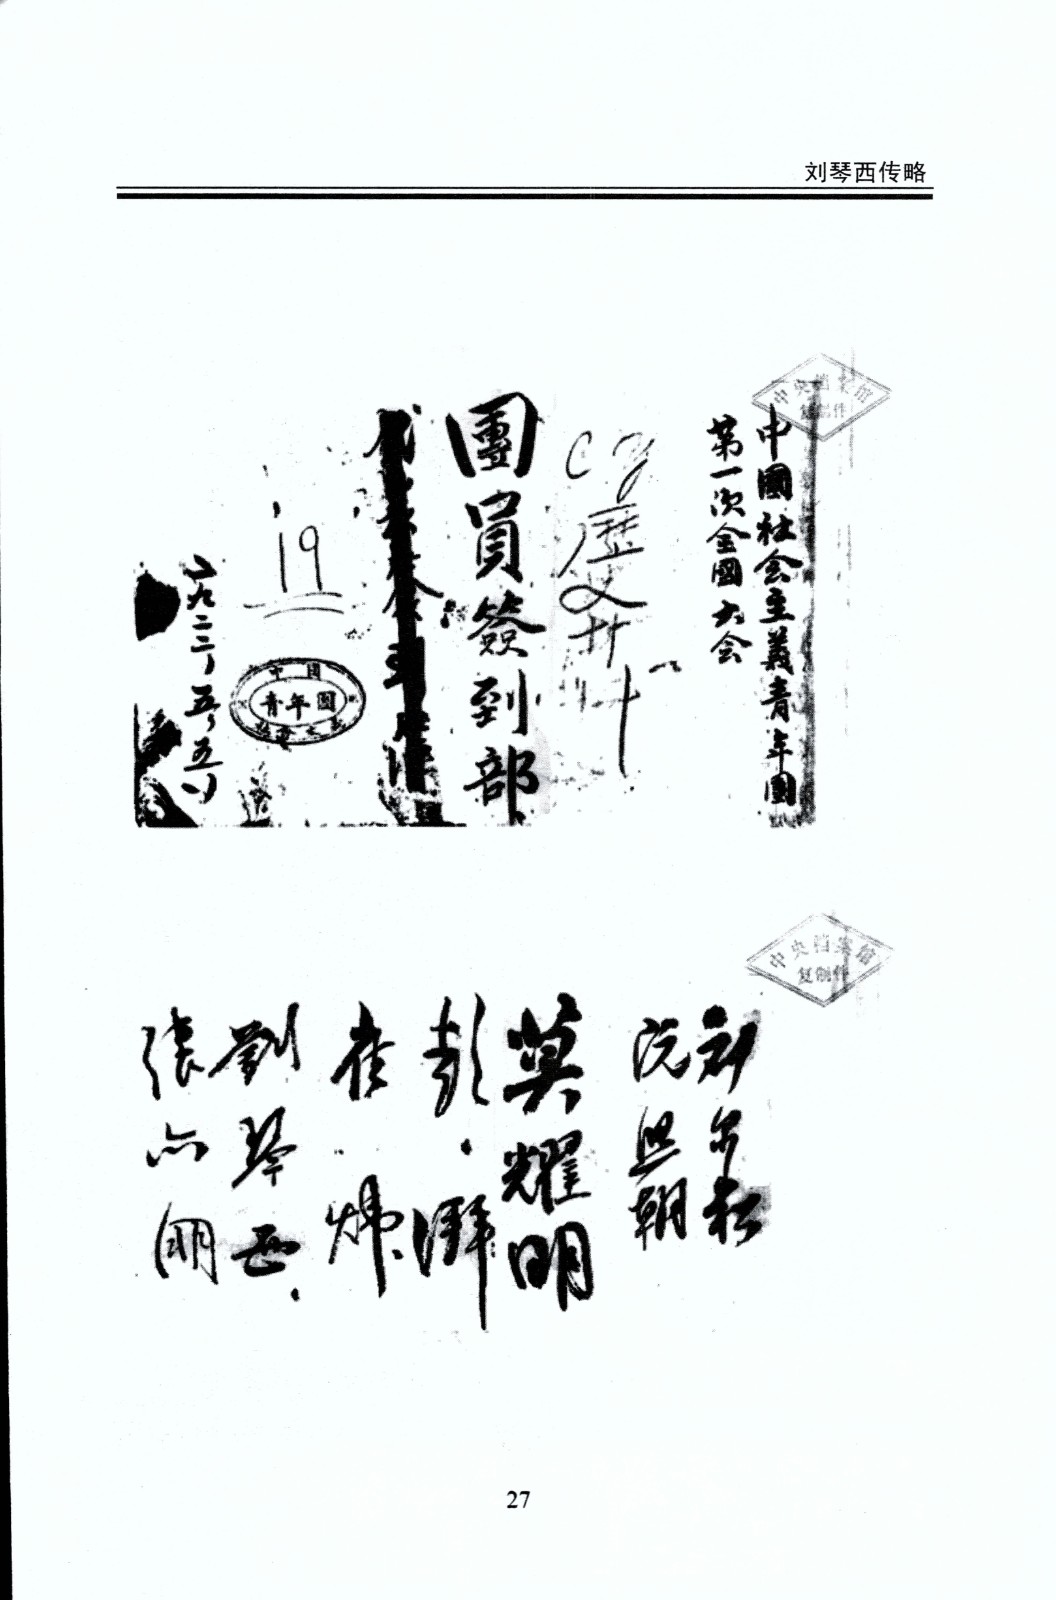 刘琴西传略
中央档案馆
复制件
中國社会主義青年團
第一次全國大会
C Y
團員簽到部
19
中国
青年團
一九二二、五、五、
中央档案馆
复制件
刘尔崧
阮熙朝
莫耀明
彭湃
崔炜
劉琴西
張六朋
27